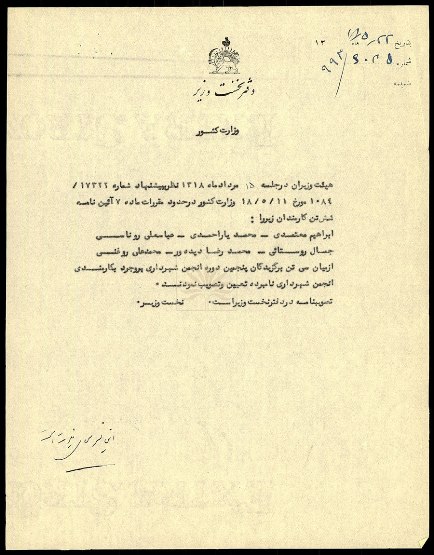 تاریخ ۲۲ر۵ر۱۳۱۸
شماره ۶۰۲۵/۹۹۳
ضمیمه
دفتر نخست وزیر
وزارت کشور
هیئت وزیران درجلسه ۱۵ مردادماه ۱۳۱۸ نظربپیشنهاد شماره ۱۷۳۲۲/
۱۰۸۴ مورخ ۱۸/۵/۱۱ وزارت کشور درحدود مقررات ماده ۷ آئین نامه
شش تن کارمندان زیررا:
ابراهیم معتضدی – محمد یاراحمدی – عباسعلی روناسی
جمال روستائی – محمد رضا دیده ور – محمدعلی روغنی
ازبیان سی تن برگزیدگان پنجمین دوره انجمن شهرداری بروجرد بکارمندی
انجمن شهرداری نامبرده تعیین وتصویب نمودند.
تصویبنامه دردفترنخست وزیراست. نخست وزیر.